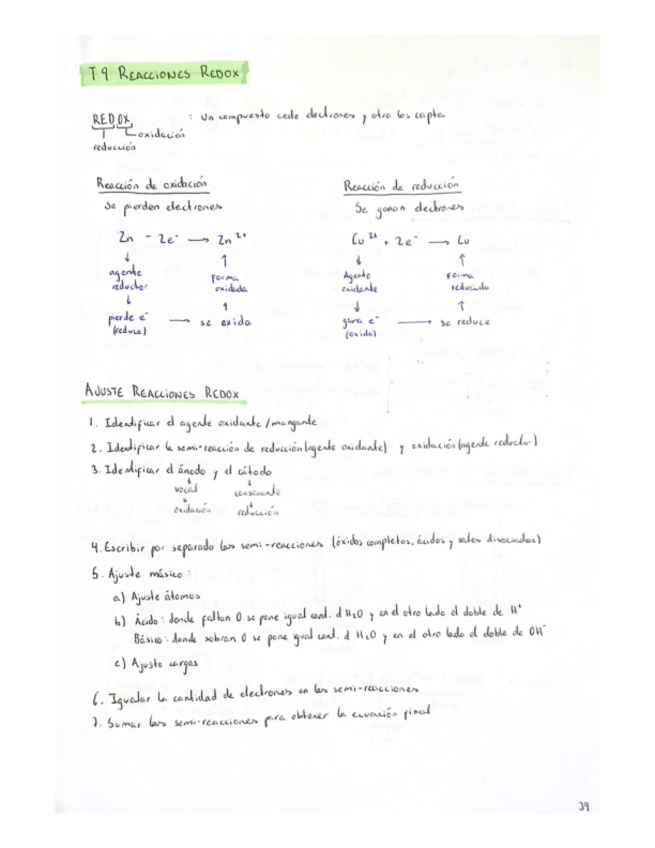 T.9 REACCIONES REDOX
REDOX : Un compuesto cede electrones y otro los capta
oxidación
reducción
Reacción de oxidación
Se pierden electrones
Zn - 2e⁻ → Zn²⁺
↓ ↑
agente reductor
forma oxidada
↓ ↑
pierde e⁻ → se oxida
(reduce)
Reacción de reducción
Se ganan electrones
Cu²⁺ + 2e⁻ → Cu
↓ ↑
Agente oxidante
Forma reducida
↓ ↑
gana e⁻ → se reduce
(oxida)
AJUSTE REACCIONES REDOX
1. Identificar el agente oxidante/
2. Identificar la semi-reacción de reducción (agente oxidante) y oxidación (agente reductor)
3. Identificar el ánodo y el cátodo
↓ ↓
vocal consonante
↓ ↓
oxidación reducción
4. Escribir por separado las semi-reacciones (óxidos completos, ácidos y sales disociados)
5. Ajuste másico:
a) Ajuste átomos
b) Ácido: donde faltan O se pone igual cant. d H₂O y en el otro lado el doble de H⁺
Básico: donde sobran O se pone igual cant. d H₂O y en el otro lado el doble de OH⁻
c) Ajuste cargas
6. Igualar la cantidad de electrones en las semi-reacciones
7. Sumar las semi-reacciones para obtener la ecuación final
39